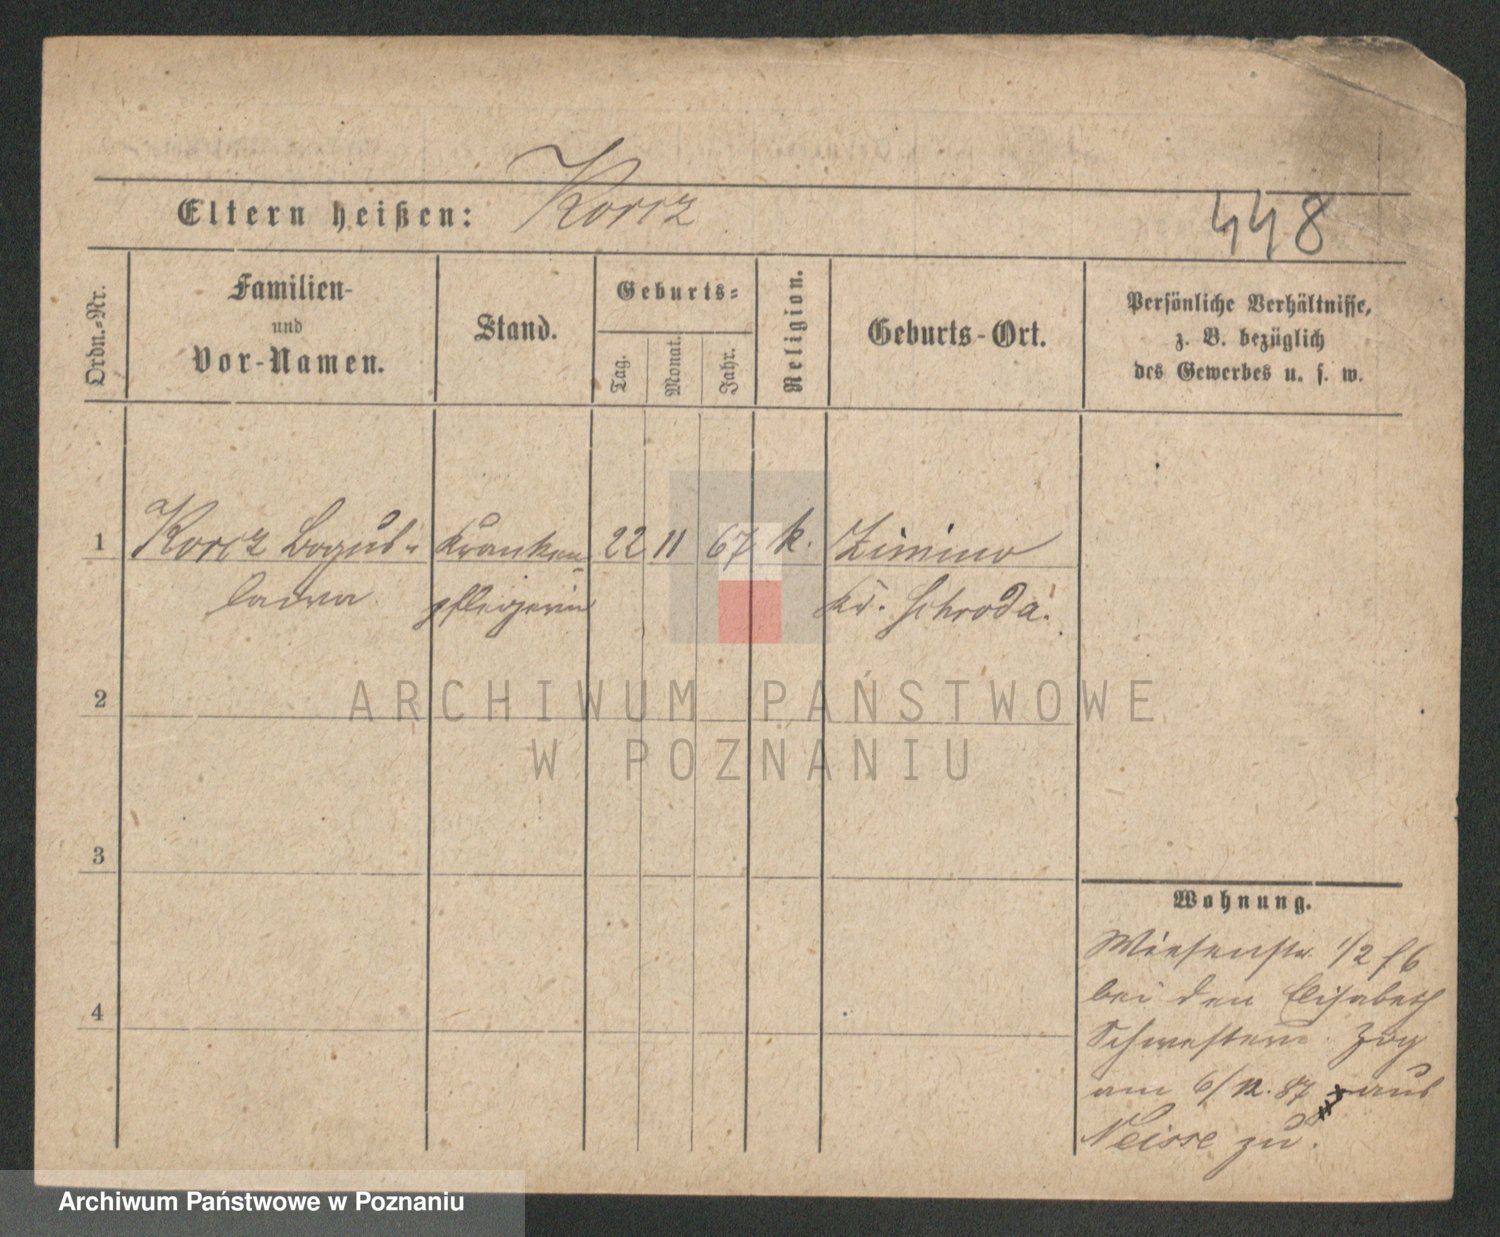 Eltern heißen: Korcz
448
Ordn.-Nr.
Familien-
und
Vor-Namen.
Stand.
Geburts-
Tag.
Monat.
Jahr.
Religion.
Geburts-Ort.
Persönliche Verhältnisse,
z. B. bezüglich
des Gewerbes u. s. w.
1 Korcz Bogus- Kranken- 22 11 67 k. Zimino
lawa pflegerin Kr. Schroda.
2
3
4
Wohnung.
Wiesenstr. 1/2
bei den Elisabeth
Schwestern. Zog
am 6/12. 87 aus
Neisse zu.
ARCHIWUM PAŃSTWOWE
W POZNANIU
Archiwum Państwowe w Poznaniu